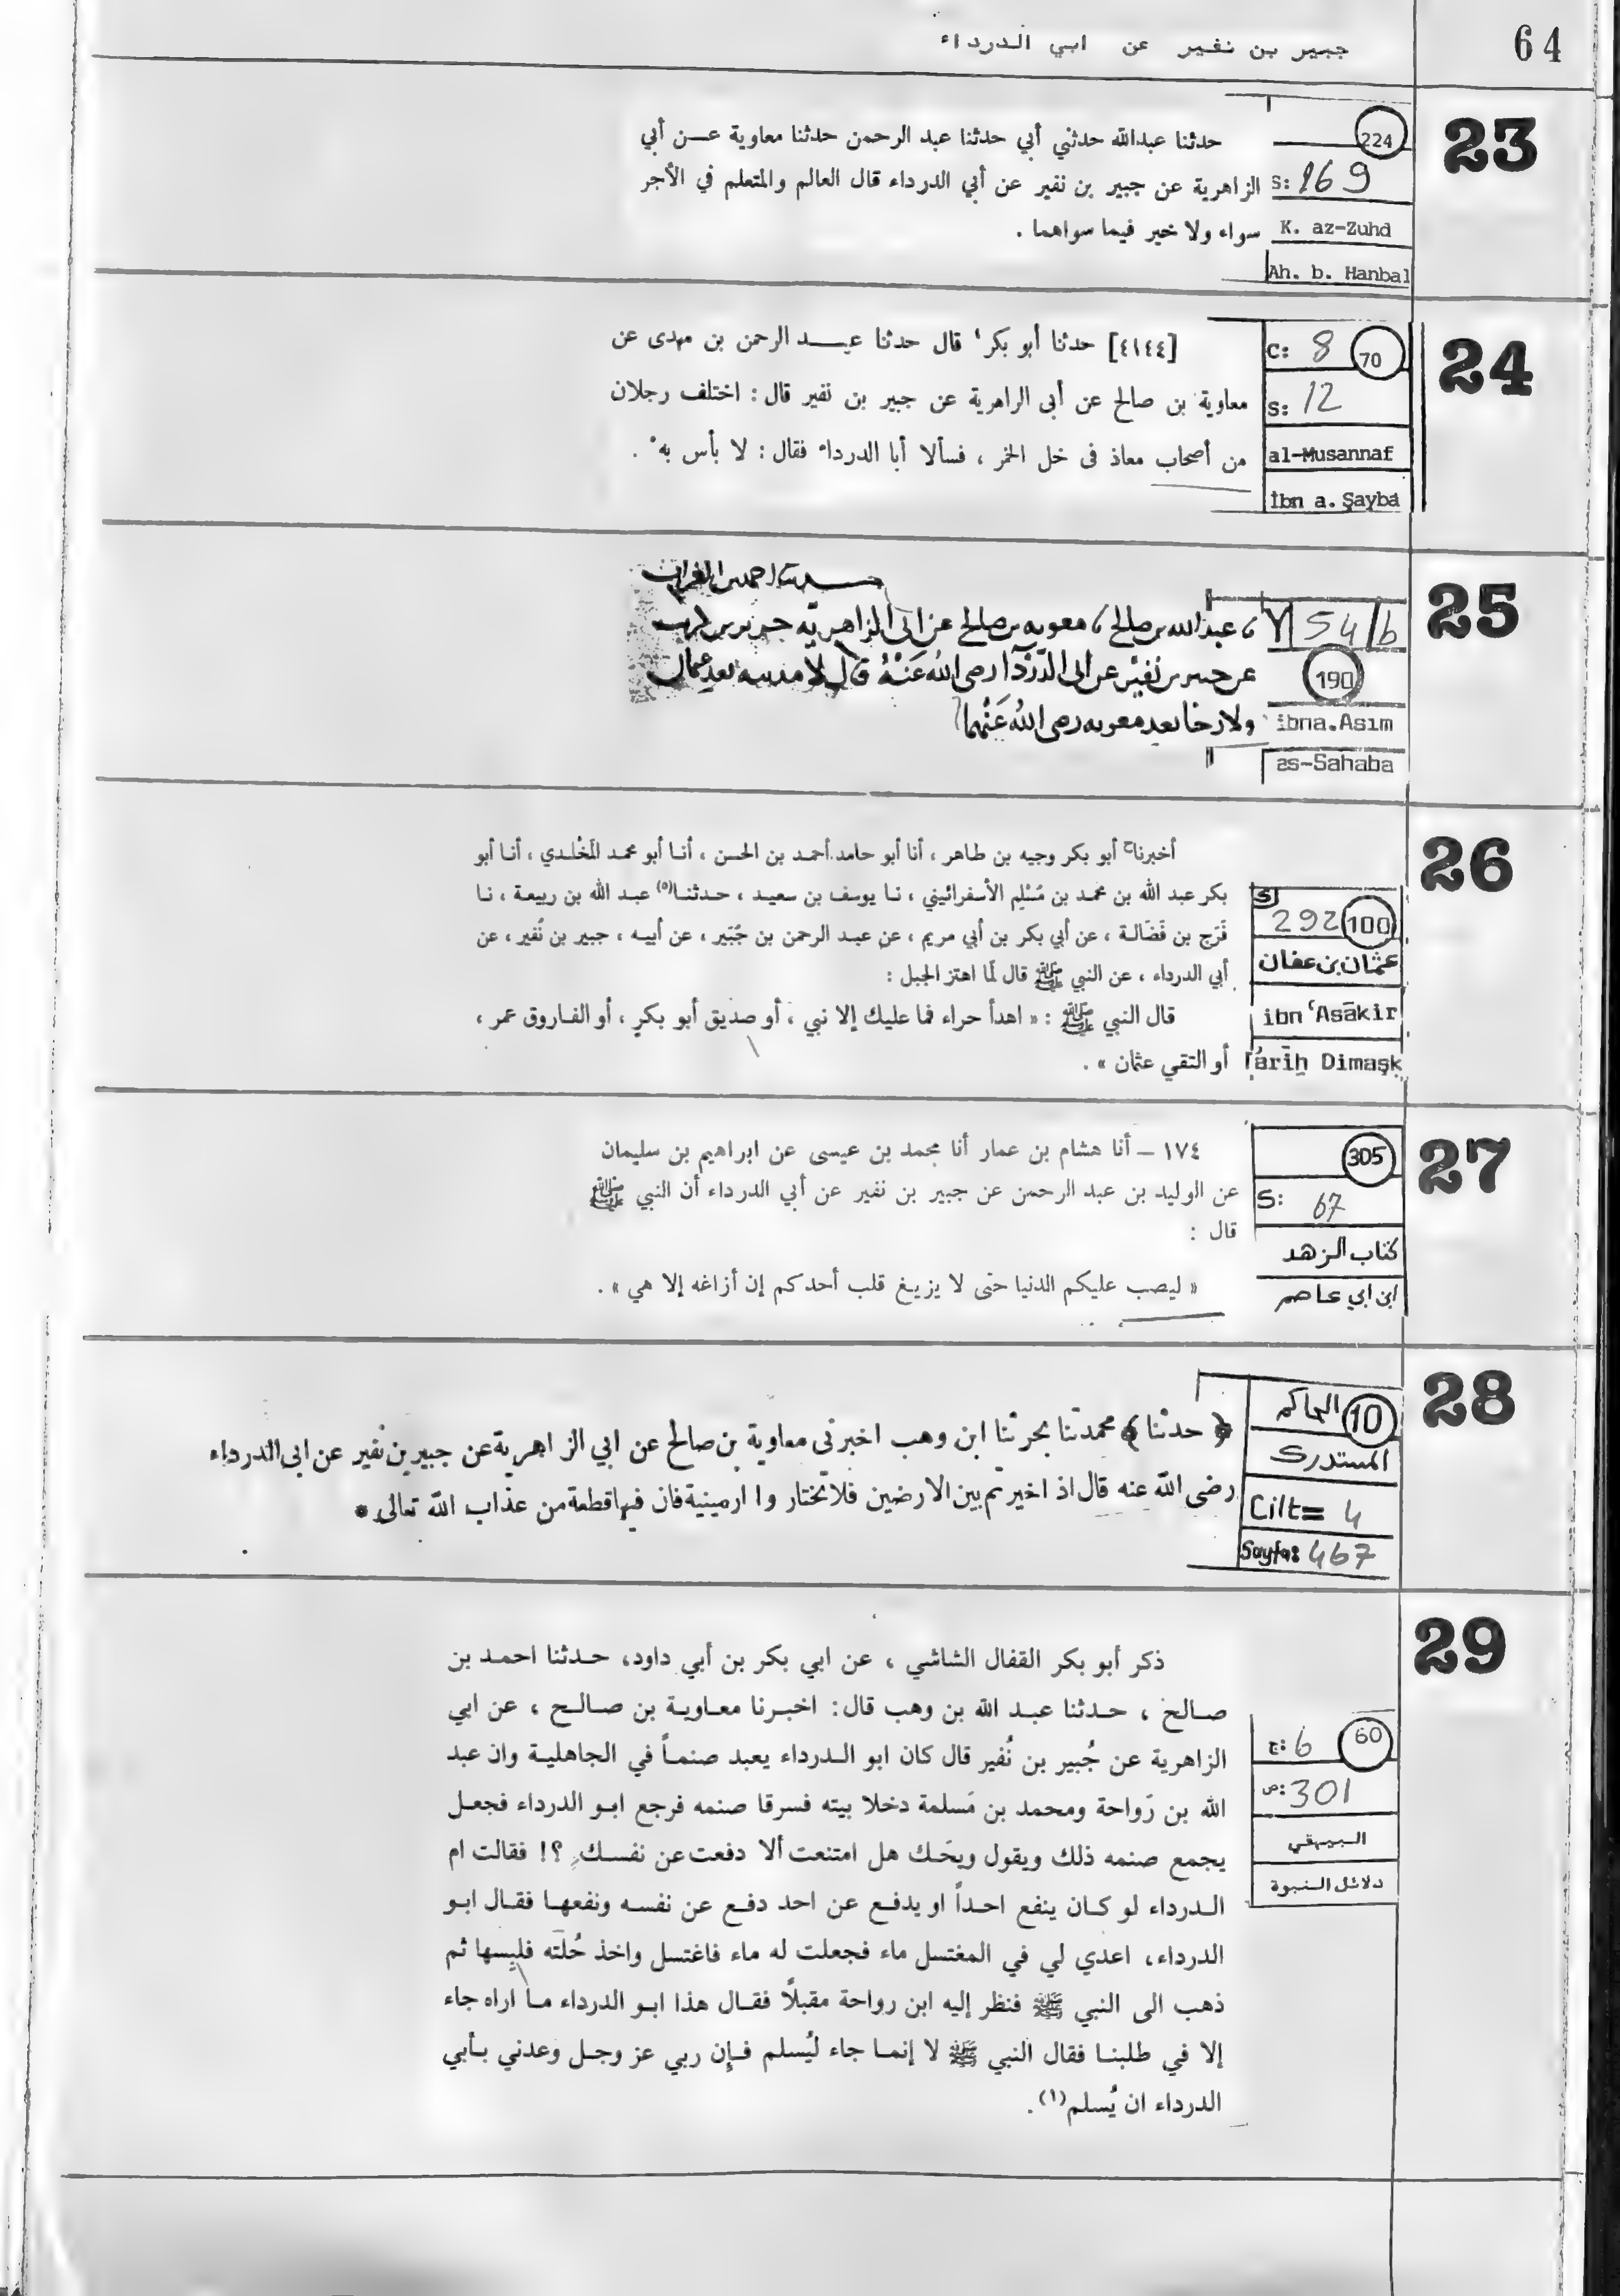 64
جبير بن نفير عن ابي الدرداء
23
224
S: 169
K. az-Zuhd
Ah. b. Hanbal
حدثنا عبدالله حدثني أبي حدثنا عبد الرحمن حدثنا معاوية عــن أبي
الزاهرية عن جبير بن نفير عن أبي الدرداء قال العالم والمتعلم في الأجر
سواء ولا خير فيما سواهما .
24
C: 8 70
S: 12
al-Musannaf
İbn a. Şayba
[٤١٤٤] حدثنا أبو بكر قال حدثنا عبد الرحمن بن مهدى عن
معاوية بن صالح عن أبى الراهرية عن جبير بن نفير قال : اختلف رجلان
من أصحاب معاذ فى خل الخمر ، فسألا أبا الدرداء فقال : لا بأس به .
25
Y 54/b
190
ibna.Asım
as-Sahaba
عبد الله بن صالح معويه بن صالح عن ابى الزاهريه
عن جبير بن نفير عن ابى الدردا رصى الله عنه قال لا مدينه بعد عثمان
ولا رخا بعد معويه رصى الله عنهما
26
S
292 100
عثمان بن عفان
ibn ʿAsākir
Tārīḫ Dimaşḳ
أخبرناح أبو بكر وجيه بن طاهر ، أنا أبو حامد أحمد بن الحسن ، أنا أبو محمد المَخْلدي ، أنا أبو
بكر عبد الله بن محمد بن مُسْلِم الأسفرائيني ، نا يوسف بن سعيد ، حدثنا(٥) عبد الله بن ربيعة ، نا
فَرَج بن فَضَالة ، عن أبي بكر بن أبي مريم ، عن عبد الرحمن بن جُبَير ، عن أبيه ، جبير بن نُفير ، عن
أبي الدرداء ، عن النبي ﷺ قال لمّا اهتز الجبل :
قال النبي ﷺ : « اهدأ حراء فما عليك إلا نبي ، أو صديق أبو بكر ، أو الفاروق عمر ،
أو التقي عثمان » .
27
305
S: 67
كتاب الزهد
ابن ابي عاصم
١٧٤ – أنا هشام بن عمار أنا محمد بن عيسى عن ابراهيم بن سليمان
عن الوليد بن عبد الرحمن عن جبير بن نفير عن أبي الدرداء أن النبي ﷺ
قال :
« ليصب عليكم الدنيا حتى لا يزيغ قلب أحدكم إن أزاغه إلا هي » .
28
الحاكم 10
المستدرك
Cilt= 4
Sayfa: 467
﴿ حدثنا ﴾ محمد ثنا بحر ثنا ابن وهب اخبرنى معاوية بن صالح عن ابي الزاهرية عن جبير بن نفير عن ابى الدرداء
رضى الله عنه قال اذا خيرتم بين الارضين فلا تختاروا ارمينية فان فيها قطعة من عذاب الله تعالى *
29
ج: 6 60
ص: 301
البيهقي
دلائل النبوة
ذكر أبو بكر القفال الشاشي ، عن ابي بكر بن أبي داود، حدثنا احمد بن
صالح ، حدثنا عبد الله بن وهب قال: اخبرنا معاوية بن صالح ، عن ابي
الزاهرية عن جُبير بن نُفير قال كان ابو الدرداء يعبد صنماً في الجاهلية وان عبد
الله بن رَواحة ومحمد بن مَسلمة دخلا بيته فسرقا صنمه فرجع ابو الدرداء فجعل
يجمع صنمه ذلك ويقول ويحَك هل امتنعت ألا دفعت عن نفسك ؟! فقالت ام
الدرداء لو كان ينفع احداً او يدفع عن احد دفع عن نفسه ونفعها فقال ابو
الدرداء، اعدي لي في المغتسل ماء فجعلت له ماء فاغتسل واخذ حُلَته فلبسها ثم
ذهب الى النبي ﷺ فنظر إليه ابن رواحة مقبلًا فقال هذا ابو الدرداء ما اراه جاء
إلا في طلبنا فقال النبي ﷺ لا إنما جاء ليُسلم فإن ربي عز وجل وعدني بأبي
الدرداء ان يُسلم(١) .